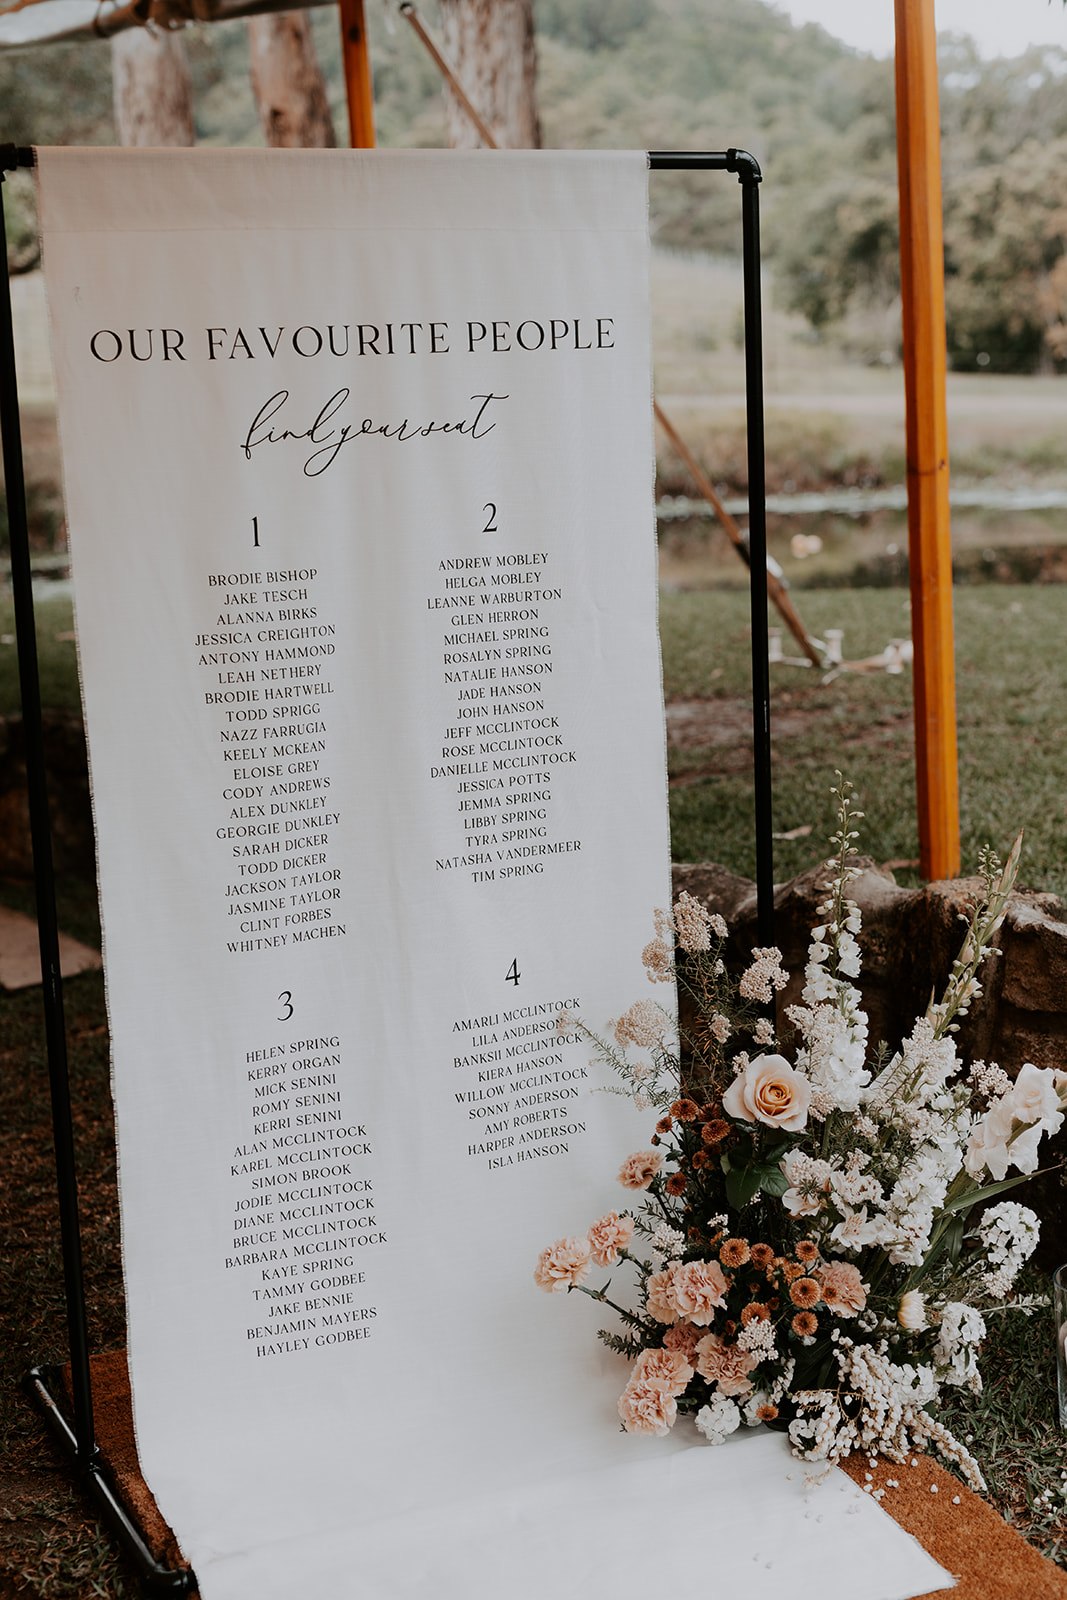 OUR FAVOURITE PEOPLE
find your seat
1
BRODIE BISHOP
JAKE TESCH
ALANNA BIRKS
JESSICA CREIGHTON
ANTONY HAMMOND
LEAH NETHERY
BRODIE HARTWELL
TODD SPRIGG
NAZZ FARRUGIA
KEELY MCKEAN
ELOISE GREY
CODY ANDREWS
ALEX DUNKLEY
GEORGIE DUNKLEY
SARAH DICKER
TODD DICKER
JACKSON TAYLOR
JASMINE TAYLOR
CLINT FORBES
WHITNEY MACHEN
2
ANDREW MOBLEY
HELGA MOBLEY
LEANNE WARBURTON
GLEN HERRON
MICHAEL SPRING
ROSALYN SPRING
NATALIE HANSON
JADE HANSON
JOHN HANSON
JEFF MCCLINTOCK
ROSE MCCLINTOCK
DANIELLE MCCLINTOCK
JESSICA POTTS
JEMMA SPRING
LIBBY SPRING
TYRA SPRING
NATASHA VANDERMEER
TIM SPRING
3
HELEN SPRING
KERRY ORGAN
MICK SENINI
ROMY SENINI
KERRI SENINI
ALAN MCCLINTOCK
KAREL MCCLINTOCK
SIMON BROOK
JODIE MCCLINTOCK
DIANE MCCLINTOCK
BRUCE MCCLINTOCK
BARBARA MCCLINTOCK
KAYE SPRING
TAMMY GODBEE
JAKE BENNIE
BENJAMIN MAYERS
HAYLEY GODBEE
4
AMARLI MCCLINTOCK
LILA ANDERSON
BANKSII MCCLINTOCK
KIERA HANSON
WILLOW MCCLINTOCK
SONNY ANDERSON
AMY ROBERTS
HARPER ANDERSON
ISLA HANSON